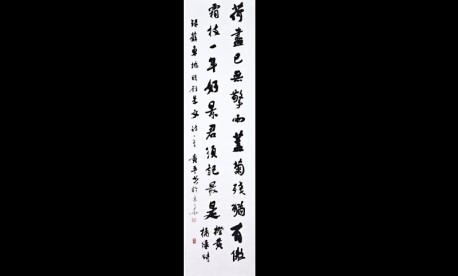 荷盡已無擎雨蓋菊殘猶有傲
霜枝一年好景君須記最是
橙黄
橘绿時
錄蘇東坡贈刘景文詩